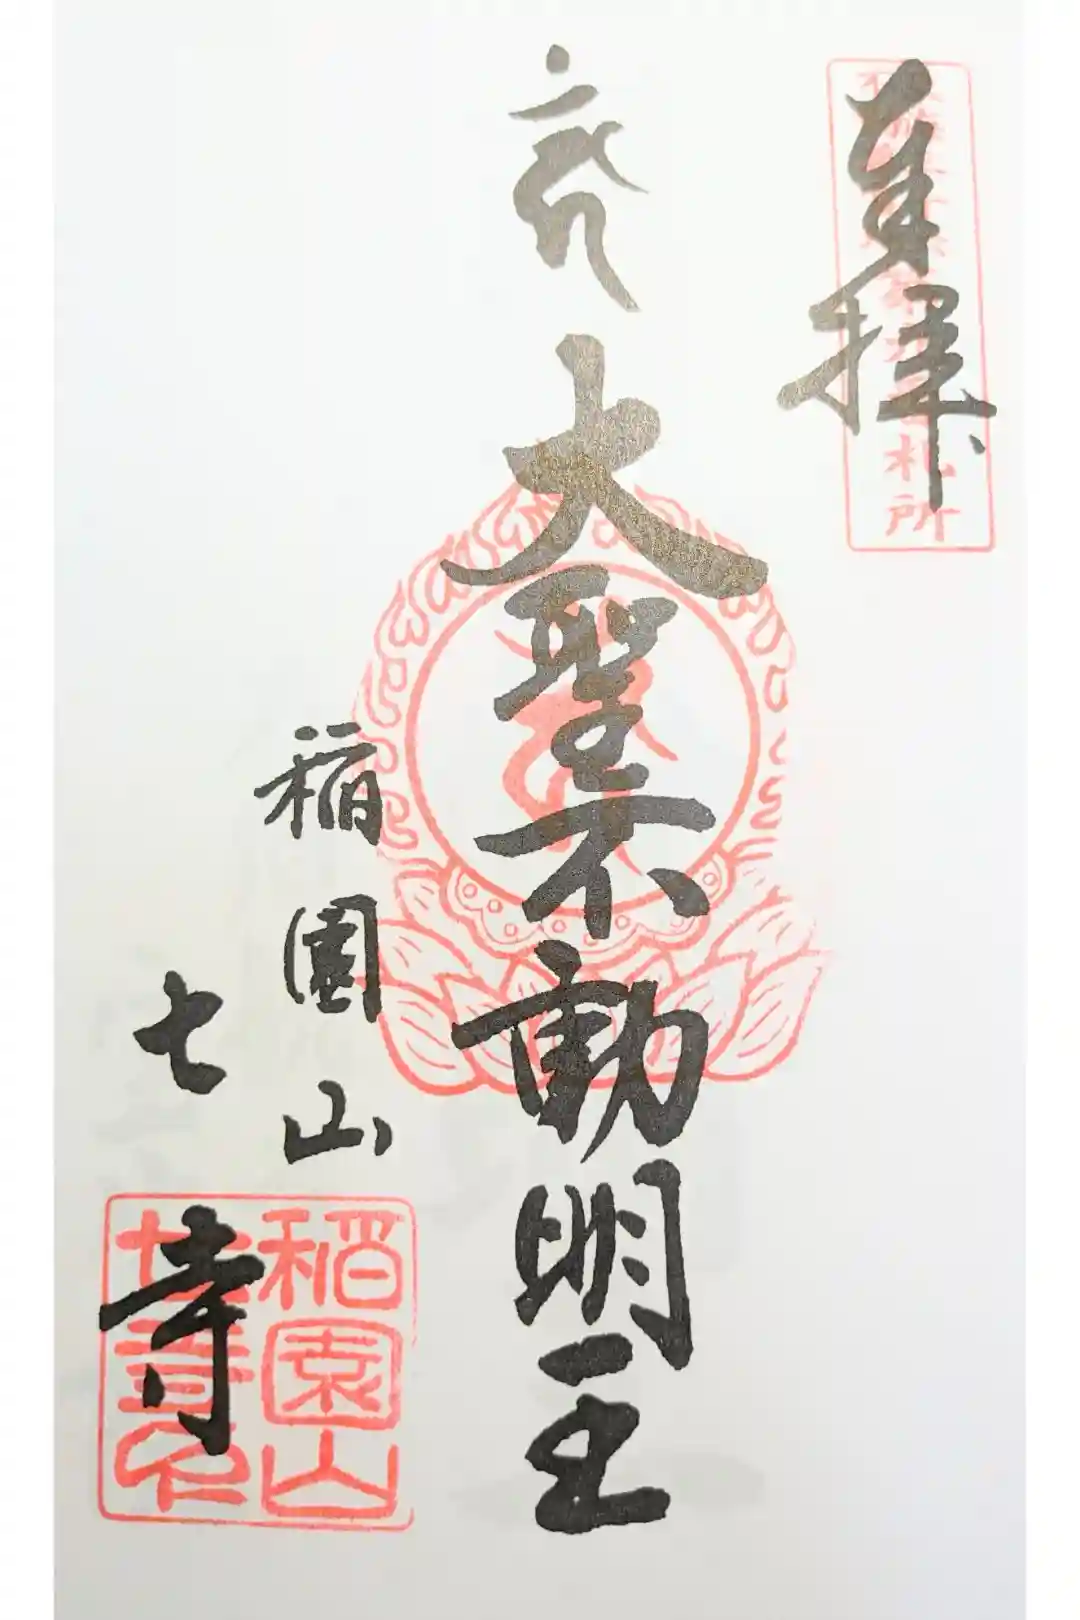 奉拝
札所
大聖不動明王
稲園山
七寺
稲園山